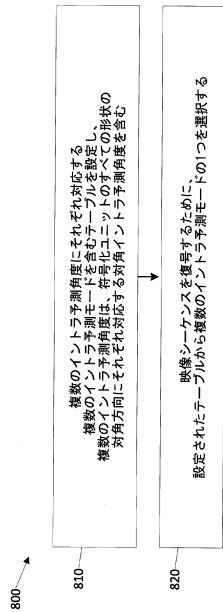 800
810
複数のイントラ予測角度にそれぞれ対応する
複数のイントラ予測モードを含むテーブルを設定し、
複数のイントラ予測角度は、符号化ユニットのすべての形状の
対角方向にそれぞれ対応する対角イントラ予測角度を含む
820
映像シーケンスを復号するために、
設定されたテーブルから複数のイントラ予測モードの1つを選択する